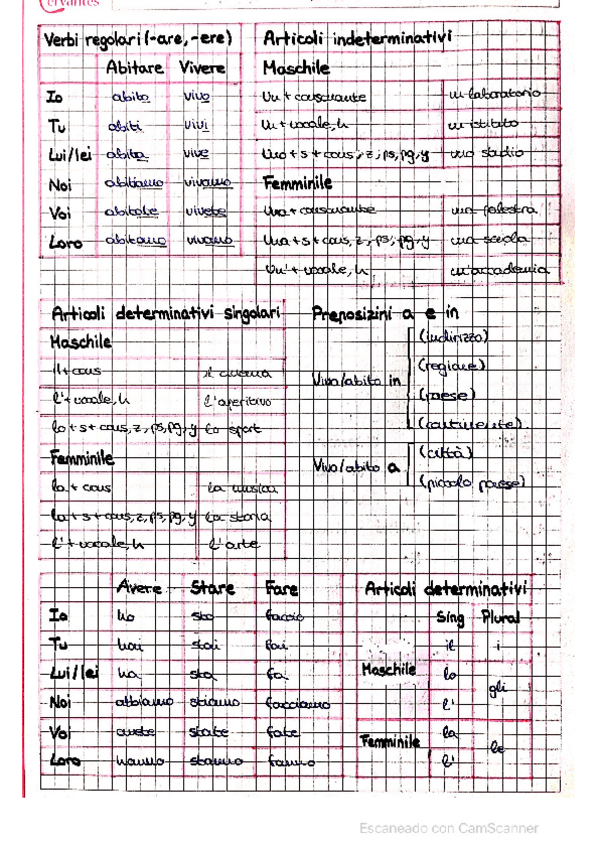 Cervantes
Verbi regolari (-are, -ere)
Abitare Vivere
Io abito vivo
Tu abiti vivi
Lui/lei abita vive
Noi abitiamo viviamo
Voi abitate vivete
Loro abitano vivono
Articoli indeterminativi
Maschile
Un + consonante un laboratorio
un + vocale, h un istituto
uno + s + cons, z, ps, pg, y uno studio
Femminile
Una + consonante una palestra
Una + s + cons, z, ps, pg, y una scuola
Un' + vocale, h un'accademia
Articoli determinativi singolari
Maschile
il + cons il cinema
l' + vocale, h l'aperitivo
lo + s + cons, z, ps, pg, y lo sport
Femminile
la + cons la musica
la + s + cons, z, ps, pg, y la storia
l' + vocale, h l'arte
Preposizini a e in
Vivo/abito in
(indirizzo)
(regione)
(paese)
(continente)
Vivo/abito a
(città)
(piccolo paese)
Avere Stare Fare
Io ho sto faccio
Tu hai stai fai
Lui/lei ha sta fa
Noi abbiamo stiamo facciamo
Voi avete state fate
Loro hanno stanno fanno
Articoli determinativi
Sing Plural
Maschile
il i
lo
gli
l'
Femminile
la
le
l'
Escaneado con CamScanner